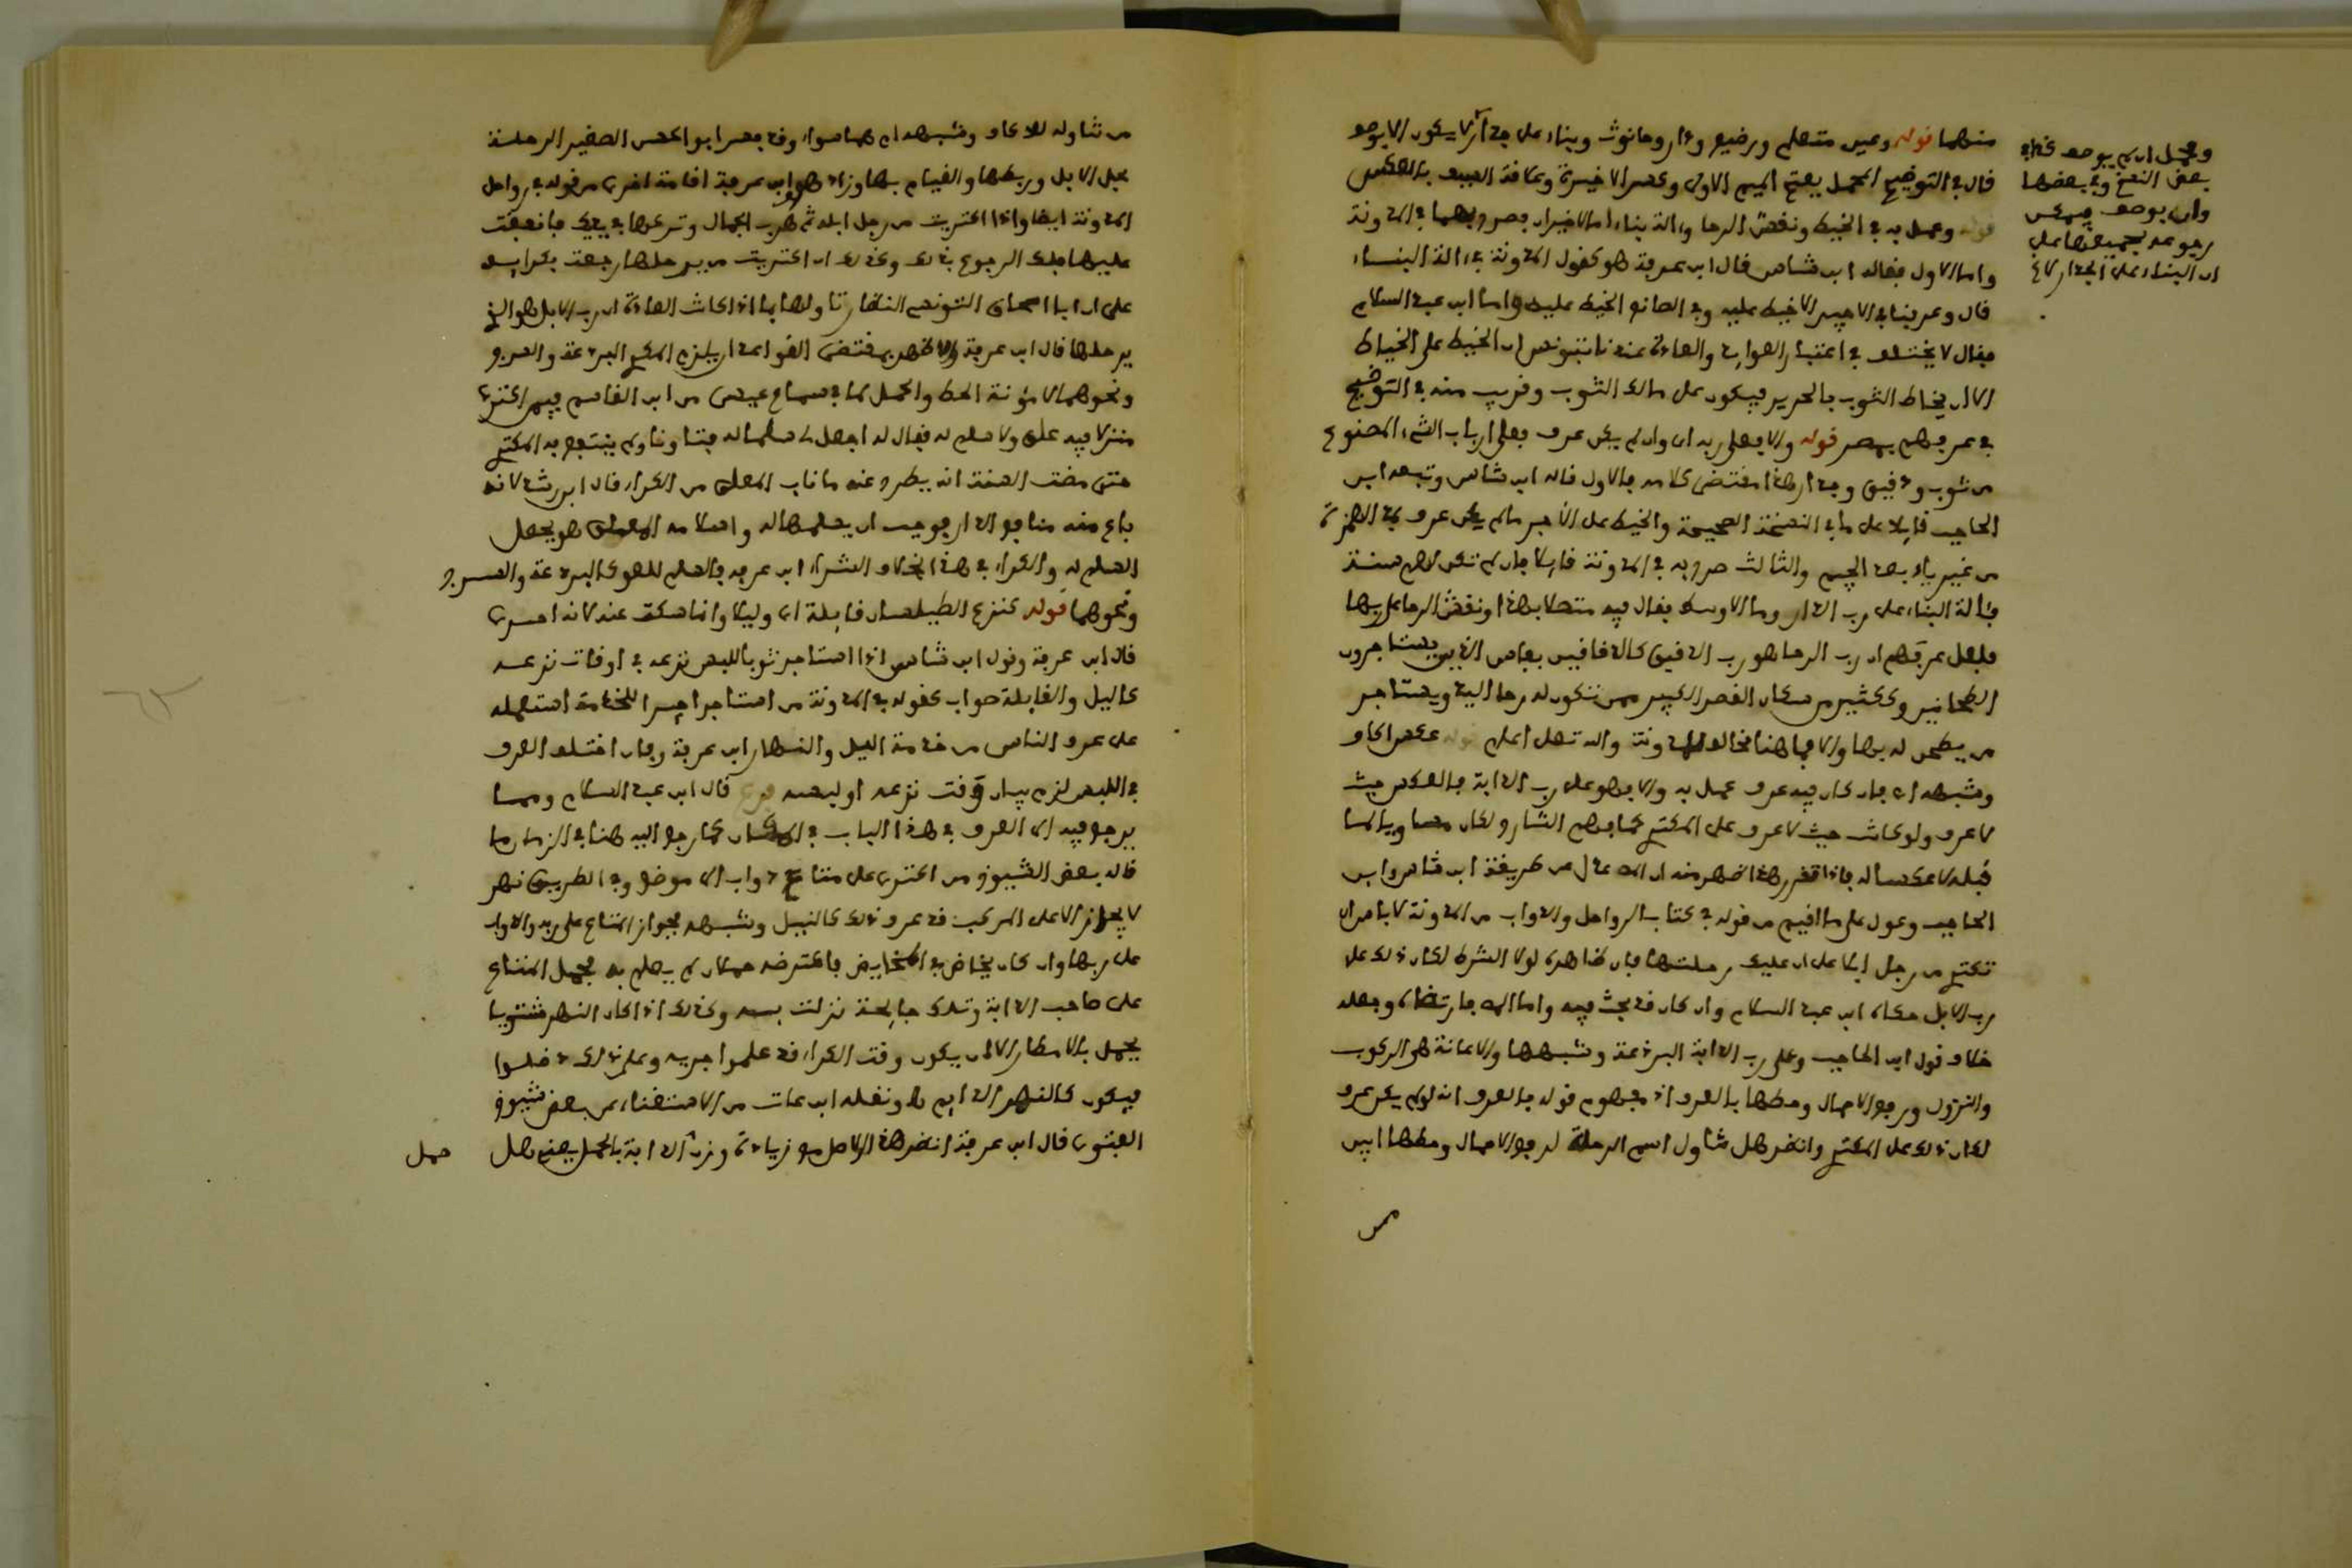 منهما قوله وعين متعلم ورضيع ودار وحانوت وبناء على جدار لا يكون الا بوصف
قال في التوضيح المحمل بفتح الميم الاولى وكسر الاخيرة وعلاقة السيف بالعكس
قوله وعمل به في الخيط ونقش الرحا والة بناء اما الاخيران بصرح بهما في المدونة
واما الاول فقاله ابن شاس قال ابن عرفة هو كقول المدونة في الة البناء
قال وعرفنا في الاجير لا خيط عليه وفي الصانع الخيط عليه واما ابن عبد السلام
فقال لا يختلف في اعتبار العوايد والعادة عندنا بتونس ان الخيط على الخياط
الا ان يخاط الثوب بالحرير فيكون على مالك الثوب وقريب منه في التوضيح
في عرفهم بمصر قوله والا فعلى ربه اي وان لم يكن عرف فعلى ارباب الشيء المصنوع
من ثوب ودقيق وجدار هذا مقتضى كلامه فالاول قاله ابن شاس وتبعه ابن
الحاجب قايلا على ما في النسخة الصحيحة والخيط على الأجير ما لم يكن عرف
من غير ياء بعد الجيم والثالث صرح به في المدونة قايلا فان لم تكن لهم سنة
فالة البناء على رب الدار وما الاوسط فقال فيه متصلا بهذا ونقش الرحا على ربها
فلعل عرفهم ان رب الرحا هو رب الدقيق كالدقاقين بفاس الذين يستاجرون
الطحانين وككثير من سكان القصر الكبير ممن تكون له رحا اليد ويستاجر
من يطحن له بها والا فما هنا مخالف للمدونة والله تعلى اعلم قوله عكس اكاف
وشبهه اي فان كان فيه عرف عمل به والا فهو على رب الدابة فالعكس حيث
لا عرف ولو كانت حيث لا عرف على المكتري كما فهم الشارح لكان مساويا لما
قبله لا عكسا له فاذا تقرر هذا ظهر منه ان المص عدل عن طريقة ابن شاس وابن
الحاجب وعول على ما افهم من قوله في كتاب الرواحل والدواب من المدونة لا باس ان
تكتري من رجل ابلا على ان عليك رحلتها فان ظاهره لولا الشرط لكان ذلك على
رب الابل حكاه ابن عبد السلام وان كان قد بحث فيه واما المص فارتضاه وجعله
خلاف قول ابن الحاجب وعلى رب الدابة البرذعة وشبهها والاعانة في الركوب
والنزول ورفع الاحمال وحطها بالعرف اذ مفهوم قوله بالعرف انه لو لم يكن عرف
لكان ذلك على المكتري وانظر هل تناول اسم الرحلة لرفع الاحمال وحطها ابين
من
ويحتمل ان لم يوصف كذا في
بعض النسخ وفي بعضها
وان بوصف فيمكن
رجوعه لجميعها على
ان البناء على الجدار لا ع
من تناوله للاكاف وشبهه ام هما سواء وقد فسر ابو الحسن الصغير الرحلة
بحل الابل وربطها والقيام بها وزاد ابن عرفة اقامة اخرى من قوله في رواحل
المدونة ايضا واذا اكتريت من رجل ابله ثم هرب الجمال وتركها في يديك فانفقت
عليها فلك الرجوع بذلك وكذلك ان اكتريت من يرحلها رجعت بكرايه
على ان ابا اسحاق التونسي النظار تاولها بما اذا كانت العادة ان رب الابل هو الذي
يرحلها قال ابن عرفة والاظهر بمقتضى القواعد ان يلزم المكري البرذعة والسرج
ونحوهما لا مؤنة الحط والحمل كما في سماع عيسى من ابن القاسم فيمن اكترى
منزلا فيه علو ولا سلم له فقال له اجعل له سلما له فتناونا ولم ينتفع به المكتري
حتى مضت السنة انه يطرح عنه ما ناب العلو من الكراء قال ابن رشد لانه
باع منه منافع الدار فوجب ان يسلمها له واسلامه العلو هو بجعل
السلم له والكراء في هذا بخلاف الشراء ابن عرفة فالسلم للعلو كالبرذعة والسرج
ونحوهما قوله كنزع الطيلسان قايلة اي وليلا وانما سكت عنه لانه احرى
قال ابن عرفة وقول ابن شاس اذا استاجر ثوبا للبس نزعه في اوقات نزعه
كاليل والقايلة صواب كقوله في المدونة من استاجر اجيرا للخدمة استعمله
على عرف الناس من خدمة اليل والنهار ابن عرفة وان اختلف العرف
في اللبس لزم بيان وقت نزعه او لبسه فرع قال ابن عبد السلام ومما
يرجع فيه الى العرف في هذا الباب في المكان كما رجع اليه هنا في الزمان ما
قاله بعض الشيوخ من اكترى على متاع دواب الى موضع وفي الطريق نهر
لا يجاز الا على المركب قد عرف ذلك كالنيل وشبهه فجواز المتاع على ربه والدواب
على ربها وان كان يخاض في المخايض فاعترضه حملان لم يعلم به فحمل المتاع
على صاحب الدابة وتلك جايحة نزلت به وكذلك اذا كان النهر شتويا
يحمل بالامطار الا ان يكون وقت الكراء قد علموا جريه وعلى ذلك دخلوا
فيكون كالنهر الدايم ونقله ابن عات من الاستغناء عن بعض شيوخ
الفتوى قال ابن عرفة انظر هذا الاصل مع زيادة وزن الدابة بالحمل بعني هل
حمل